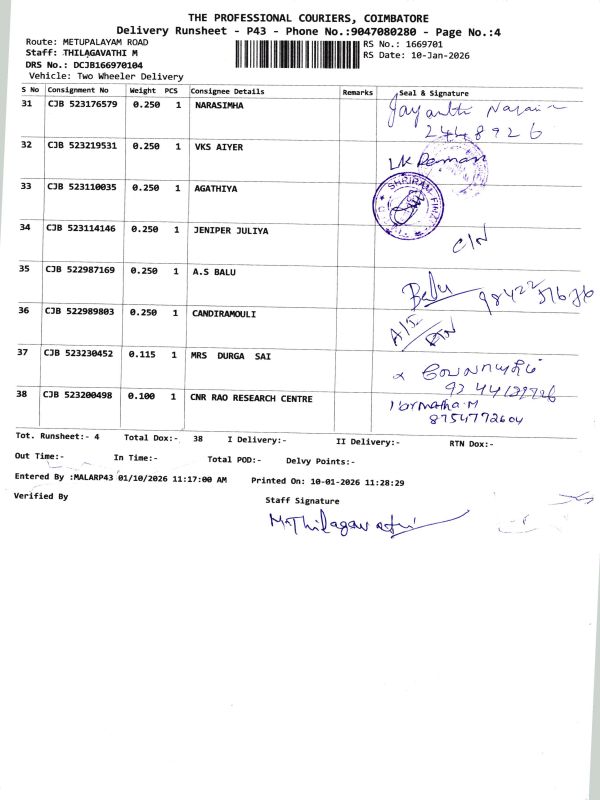 THE PROFESSIONAL COURIERS, COIMBATORE
Delivery Runsheet - P43 - Phone No.:9047080280 - Page No.:4
Route: METUPALAYAM ROAD
Staff: THILAGAVATHI M
DRS No.: DCJB166970104
Vehicle: Two Wheeler Delivery
RS No.: 1669701
RS Date: 10-Jan-2026
S No Consignment No Weight PCS Consignee Details Remarks Seal & Signature
31 CJB 523176579 0.250 1 NARASIMHA
2448926
32 CJB 523219531 0.250 1 VKS AIYER LK Raman
33 CJB 523110035 0.250 1 AGATHIYA SHRIRAM
34 CJB 523114146 0.250 1 JENIPER JULIYA C/N
35 CJB 522987169 0.250 1 A.S BALU Balu
36 CJB 522989803 0.250 1 CANDIRAMOULI
37 CJB 523230452 0.115 1 MRS DURGA SAI
38 CJB 523200498 0.100 1 CNR RAO RESEARCH CENTRE
8754772604
Tot. Runsheet:- 4 Total Dox:- 38 I Delivery:- II Delivery:- RTN Dox:-
Out Time:- In Time:- Total POD:- Delvy Points:-
Entered By :MALARP43 01/10/2026 11:17:00 AM Printed On: 10-01-2026 11:28:29
Verified By Staff Signature
M.Thilagavathi